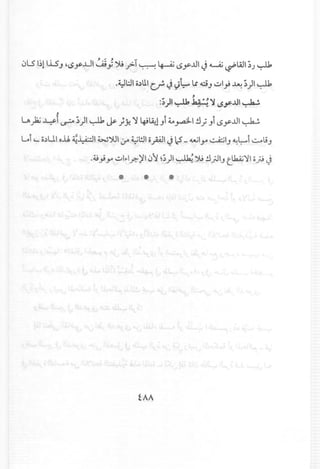 طلب ردّ القاضي نفسه في الدعوى نفسها بسبب آخر فلا تُوقَفُ الدعوى، وكذا إذا كان
طلب الردّ بعد فوات وقته مما سيأتي في شرح المادة التالية.
شطب الدعوى لا يُسْقِطُ طلب الردّ:
شطب الدعوى أو ترك الخصومة أو إيقافها لا يؤثر على طلب الردّ متى أُعيد نظرها
وقامت أسبابه وانتفت موانعه ـ كما في الفقرة الثانية من اللائحة التنفيذيَّة لهذه المادة ـ أما
في فترة الانقطاع والترك فلا يُطلب الردّ؛ لأن الإجراءات موقوفة.
• • •
٤٨٨